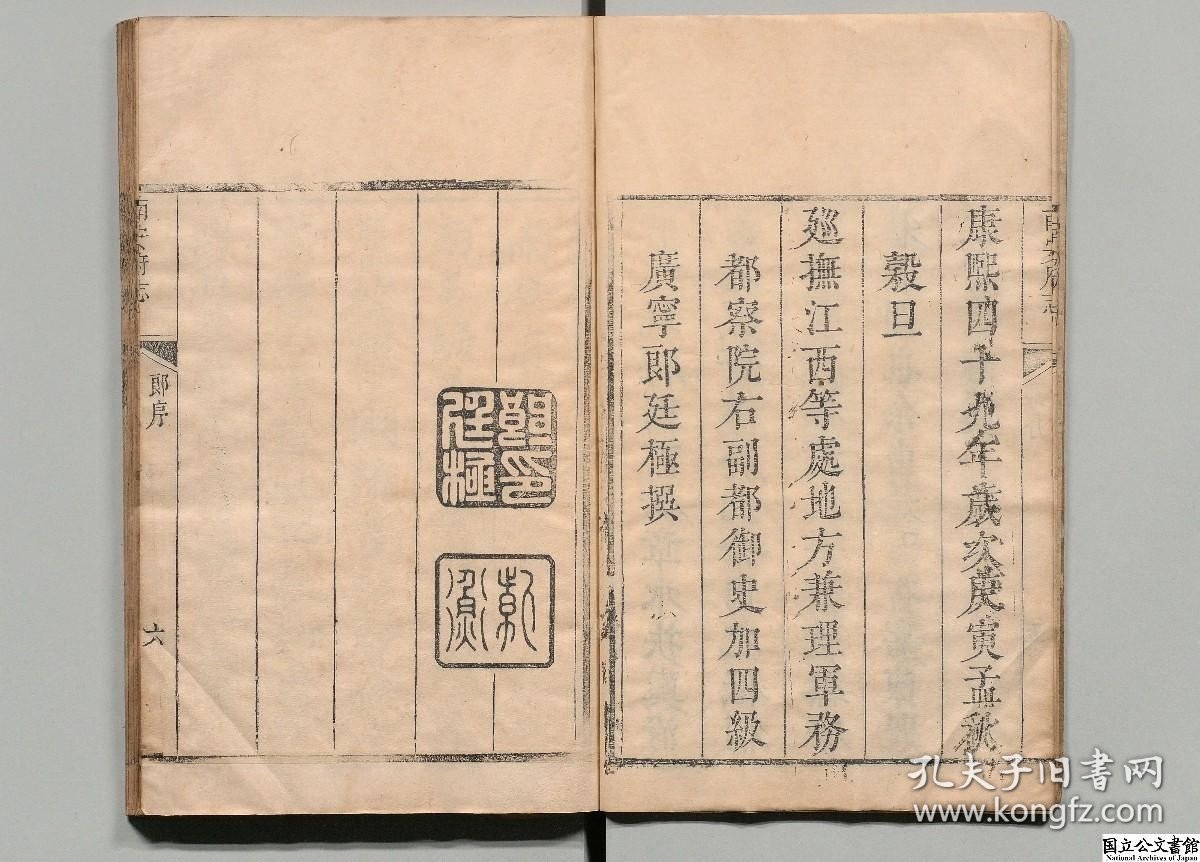 康熙四十九年歲次庚寅孟秋
穀旦
廵撫江西等處地方兼理軍務
都察院右副都御史加四級
廣寧郎廷極撰
郎印廷極
紫衡
南安府志
郎序
六
孔夫子旧书网
www.kongfz.com
国立公文書館
National Archives of Japan